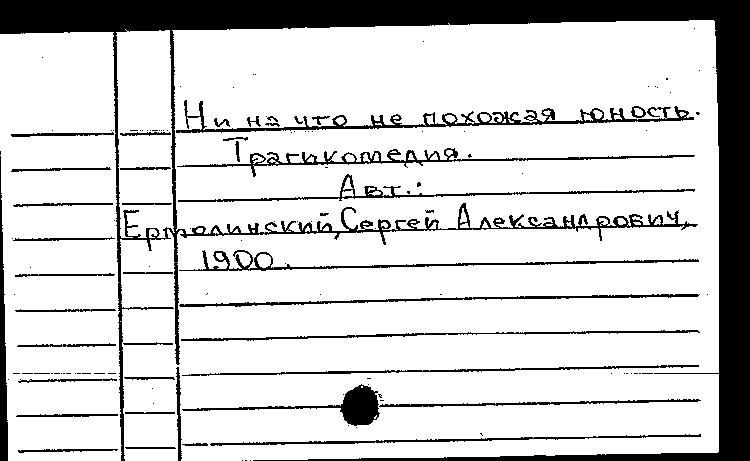 Ни на что не похожая юность.
Трагикомедия.
Авт.:
Ермолинский, Сергей Александрович,
1900.